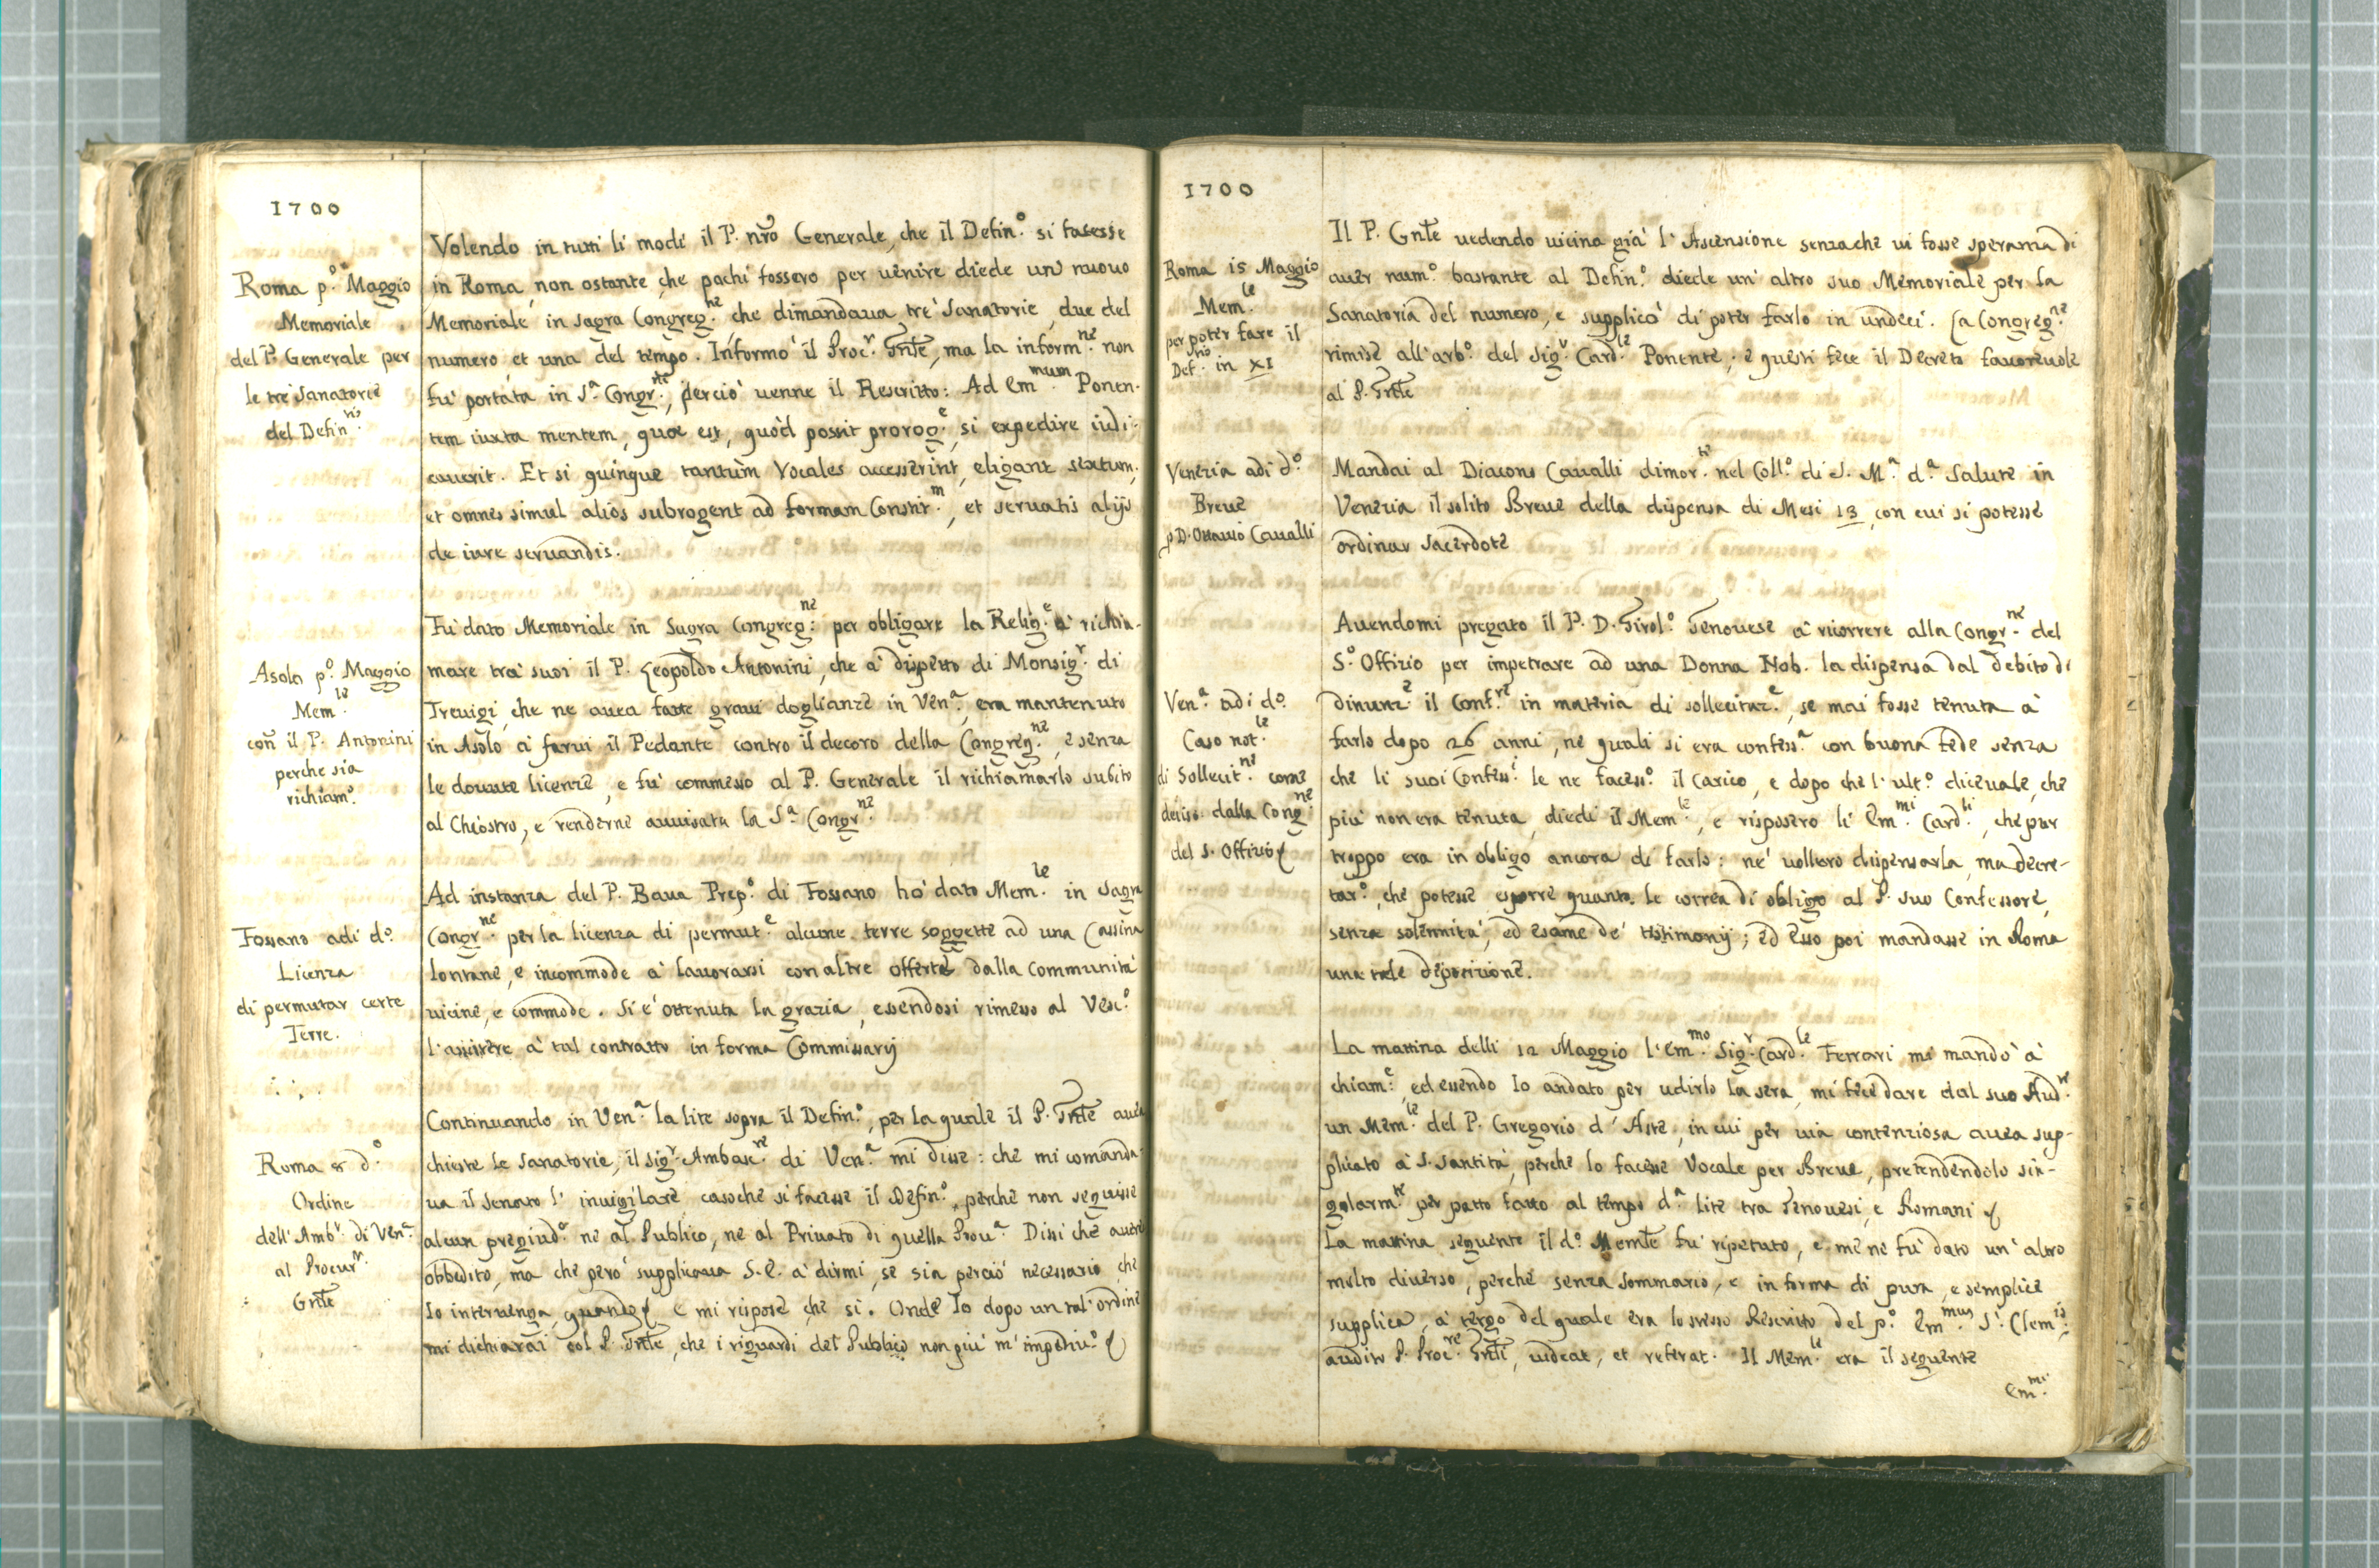 1700
Roma p.º Maggio
Memoriale
del P. Generale per
le tre Sanatorie
del Defin.ʳⁱᵒ
Volendo in tutti li modi il P. nr̃o Generale, che il Defin.º si facesse
in Roma, non ostante, che pochi fossero per uenire diede un' nuouo
Memoriale in Sagra Congreg.ⁿᵉ che dimandaua tre' Sanatorie, due del
numero, et una del tempo. Informò il Proc.ʳ Gnl̃e, ma la inform.ⁿᵉ non
fu' portata in S.ª Congr.ⁿᵉ, perciò uenne il Rescritto: Ad Em.ᵐᵘᵐ Ponen-
tem iuxta mentem, quæ est, quòd possit prorog.ᵉ, si expedire iudi-
cauerit. Et si quinque tantùm Vocales accesserint, eligant sextum,
et omnes simul alios subrogent ad formam Constit.ᵐ, et seruatis alijs
de iure seruandis.
Asolo p.º Maggio
Mem.ˡᵉ
con il P. Antonini
perche sia
richiam.º
Fu' dato Memoriale in Sagra Congreg.ⁿᵉ per obligare la Relig.ᵉ a' richia-
mare tra' suoi il P. Leopoldo Antonini, che a' dispetto di Monsig.ʳ di
Treuigi, che ne auea fatte graui doglianze in Ven.ª, era mantenuto
in Asolo a' farui il Pedante contro il decoro della Congreg.ⁿᵉ, e senza
le douute licenze, e fu' commesso al P. Generale il richiamarlo subito
al Chiostro, e renderne auuisata la S.ª Congr.ⁿᵉ
Fossano adi d.º
Licenza
di permutar certe
Terre.
Ad instanza del P. Baua Prep.º di Fossano ho' dato Mem.ˡᵉ in Sagra
Congr.ⁿᵉ per la licenza di permut.ᵉ alcune terre soggette ad una Cassina
lontane, e incommode a' lauorarsi con altre offerte dalla Communità
uicine, e commode. Si e' ottenuta la grazia, essendosi rimesso al Vesc.º
l'assistere a' tal contratto in forma Commissarij
Roma 8 d.º
Ordine
dell'Amb.ʳ di Ven.ª
al Procur.ʳ
Gnl̃e
Continuando in Ven.ª la lite sopra il Defin.º, per la quale il P. Gnl̃e auea
chieste le Sanatorie, il Sig.ʳ Ambasc.ʳᵉ di Ven.ª mi disse: che mi comanda-
ua il Senato l' inuigilare, casoche si facesse il Defin.º, perche non seguisse
alcun pregiud.º ne al Publico, ne al Priuato di quella Prou.ª Dissi che aurei
obbedito, ma che però supplicaua S.E. a' dirmi, se sia perciò necessario, che
Io interuenga, quando & E mi rispose, che si. Onde Io dopo un tal'ordine
mi dichiarai col P. Gnl̃e, che i riguardi del Publico non più m' impediu.º &
1700
Roma 15 Maggio
Mem.ˡᵉ
per poter fare il
Def.ⁿⁱᵒ in XI
Il P. Gnl̃e uedendo uicina già l' Ascensione senzache ui fosse speranza di
auer num.º bastante al Defin.º diede un' altro suo Memoriale per la
Sanatoria del numero, e supplicò di poter farlo in undeci. La Congreg.ⁿᵉ
rimise all'arb.º del Sig.ʳ Card.ˡᵉ Ponente; e questi fece il Decreto fauoreuole
al P. Gnl̃e
Venezia adi d.º
Breue
p D. Ottauio Caualli
Mandai al Diacono Caualli dimor.ᵗᵉ nel Coll.º di S. M.ª d.ª Salute in
Venezia il solito Breue della dispensa di Mesi 13, con cui si potesse
ordinar Sacerdote
Ven.ª adi d.º
Caso not.ˡᵉ
di Sollecit.ⁿᵉ come
deciso dalla Cong.ⁿᵉ
del S. Offizio &
Auendomi pregato il P. D. Girol.º Genouese a' ricorrere alla Congr.ⁿᵉ del
S.º Offizio per impetrare ad una Donna Nob. la dispensa dal debito di
dinunz.ᵉ il Conf.ʳᵉ in materia di sollecitaz.ᵉ, se mai fosse tenuta à
farlo dopo 26 anni, ne quali si era confess.ª con buona fede senza
che li suoi Confess.ⁱ le ne facess.º il carico, e dopo che l'ult.º diceuale, che
più non era tenuta, diedi il Mem.ˡᵉ, e risposero li Em.ᵐⁱ Card.ˡⁱ, che pur
troppo era in obligo ancora di farlo: ne' uollero dispensarla, ma decre-
tar.º, che potesse esporre quanto le correa di obligo al P. suo Confessore,
senza solennità, ed esame de' testimonij; ed Esso poi mandasse in Roma
una tale deposizione.
La mattina delli 12 Maggio l'Em.ᵐᵒ Sig.ʳ Card.ˡᵉ Ferrari mi mandò à
chiam.ᵉ, ed essendo Io andato per udirlo la sera, mi fece dare dal suo Aud.ʳᵉ
un Mem.ˡᵉ del P. Gregorio d' Aste, in cui per uia contenziosa auea sup-
plicato a' S. Santità, perche lo facesse Vocale per Breue, pretendendolo sin-
golarm.ᵗᵉ per patto fatto al tempo d.ª lite tra Genouesi, e Romani &
La mattina seguente il d.º Meml̃e fu' ripetuto, e me ne fu' dato un' altro
molto diuerso, perche senza Sommario, e in forma di pura, e semplice
supplica, a' tergo del quale era lo stesso Rescritto del p.º Em.ᵐᵘˢ S. Clem.ⁱˢ
audito P. Proc.ʳᵉ Gnl̃i, uideat, et referat. Il Mem.ˡᵉ era il seguente
Em.ᵐⁱ